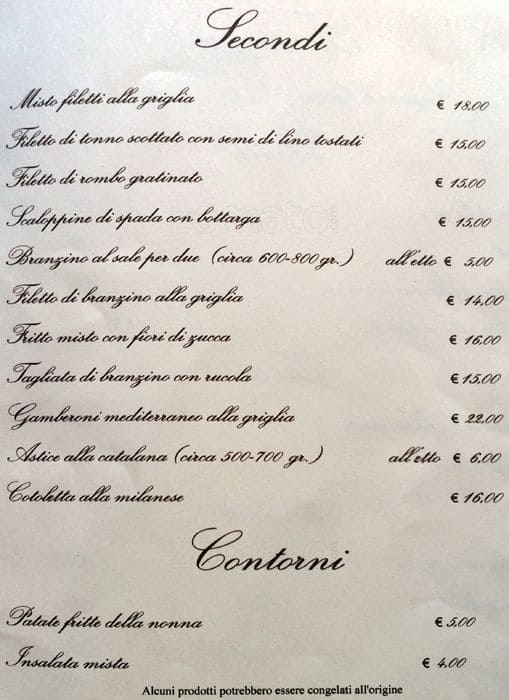 Secondi
Misto filetti alla griglia € 18,00
Filetto di tonno scottato con semi di lino tostati € 15,00
Filetto di rombo gratinato € 15,00
Scaloppine di spada con bottarga € 15,00
Branzino al sale per due (circa 600-800 gr.) all'etto € 5,00
Filetto di branzino alla griglia € 14,00
Fritto misto con fiori di zucca € 16,00
Tagliata di branzino con rucola € 15,00
Gamberoni mediterraneo alla griglia € 22,00
Astice alla catalana (circa 500-700 gr.) all'etto € 6,00
Cotoletta alla milanese € 16,00
Contorni
Patate fritte della nonna € 5,00
Insalata mista € 4,00
Alcuni prodotti potrebbero essere congelati all'origine